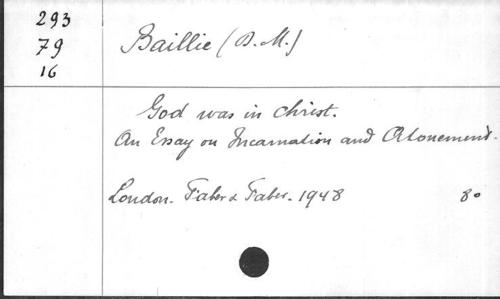 293
79
16
Baillie (D. M.)
God was in Christ.
An Essay on Incarnation and Atonement.
London. Faber & Faber. 1948 8o